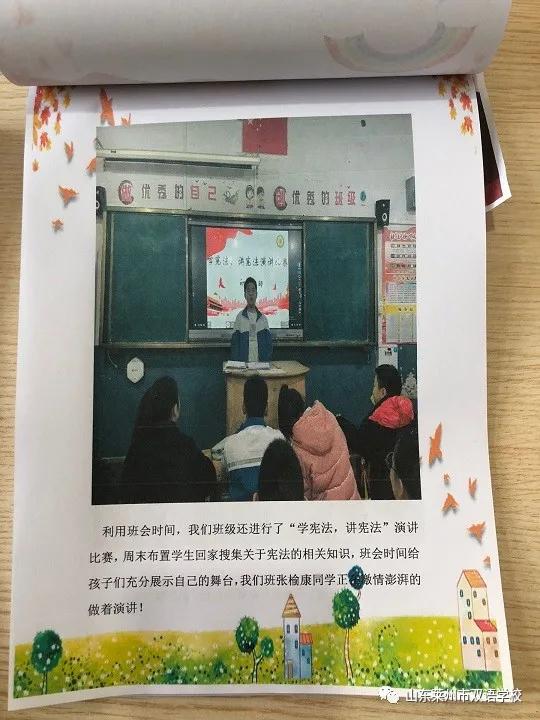 做优秀的自己
做优秀的班级
学宪法、讲宪法演讲比赛
利用班会时间，我们班级还进行了“学宪法，讲宪法”演讲
比赛，周末布置学生回家搜集关于宪法的相关知识，班会时间给
孩子们充分展示自己的舞台，我们班张榆康同学正在激情澎湃的
做着演讲！
山东莱州市双语学校